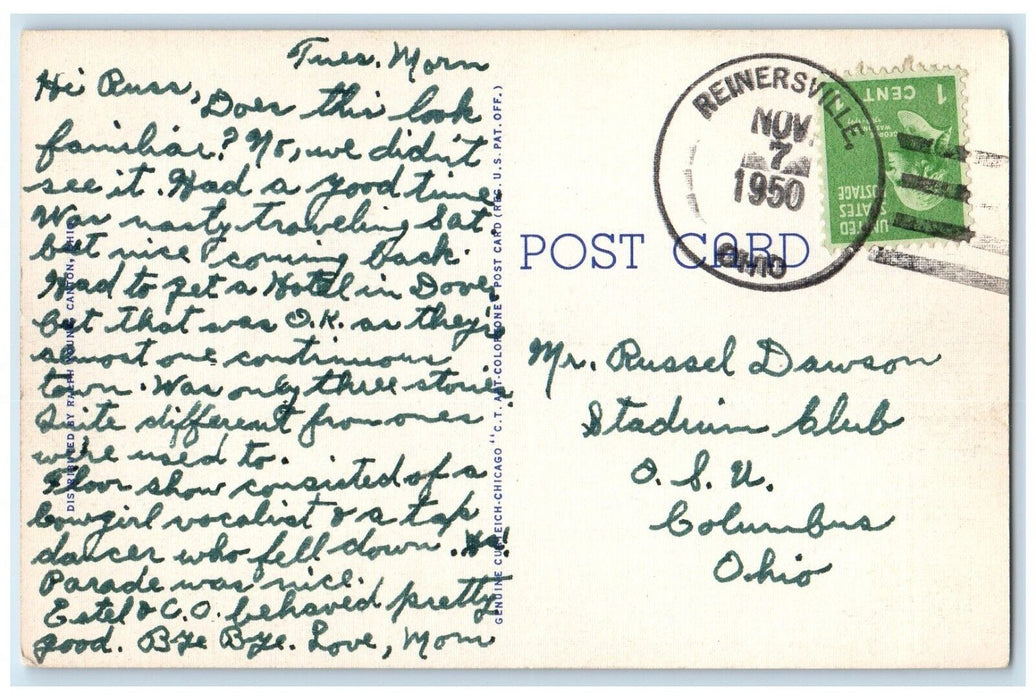 Tues. Morn
Hi Russ,
Does this look
familiar? No, we didn't
see it. Had a good time
Was nasty traveling Sat
but nice coming back.
Had to get a Hotel in Dover
but that was O.K. as they're
almost one continuous
town. Was only three stories
Quite different from ones
we're used to.
Floor show consisted of a
Cowgirl vocalist & a tap
dancer who fell down.
Parade was nice.
Estel & C.O. behaved pretty
good. Bye Bye. Love, Mom
DISTRIBUTED BY RALPH YOUNG, CANTON, OHIO
GENUINE CURTEICH-CHICAGO "C.T. ART-COLORTONE" POST CARD (REG. U.S. PAT. OFF.)
POST CARD
REINERSVILLE,
NOV
7
1950
OHIO
1 CENT
UNITED
STATES
POSTAGE
Mr. Russel Dawson
Stadium Club
O. S. U.
Columbus
Ohio